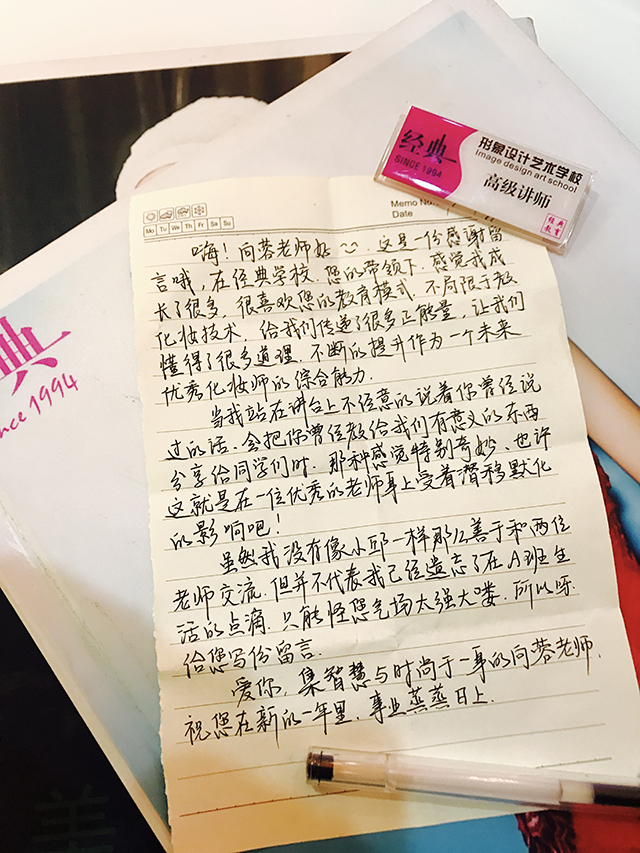 经典
SINCE 1994
形象设计艺术学校
Image design art school
高级讲师
经典
教育
Memo No.
Mo Tu We Th Fr Sa Su
Date
嗨！向蓉老师好 这是一份感谢留
言哦，在经典学校，您的带领下，感觉我成
长了很多，很喜欢您的教育模式，不局限于教
化妆技术，给我们传递了很多正能量，让我们
懂得了很多道理，不断的提升作为一个未来
优秀化妆师的综合能力.
当我站在讲台上不经意的说着你曾经说
过的话，会把你曾经教给我们有意义的东西
分享给同学们时，那种感觉特别奇妙、也许
这就是在一位优秀的老师身上受着潜移默化
的影响吧！
虽然我没有像小邱一样那么善于和两位
老师交流，但并不代表我已经遗忘了在A班生
活的点滴，只能怪您气场太强大喽，所以呀
给您写份留言.
爱你，集智慧与时尚于一身的向蓉老师，
祝您在新的一年里，事业蒸蒸日上.
典
nce 1994
美